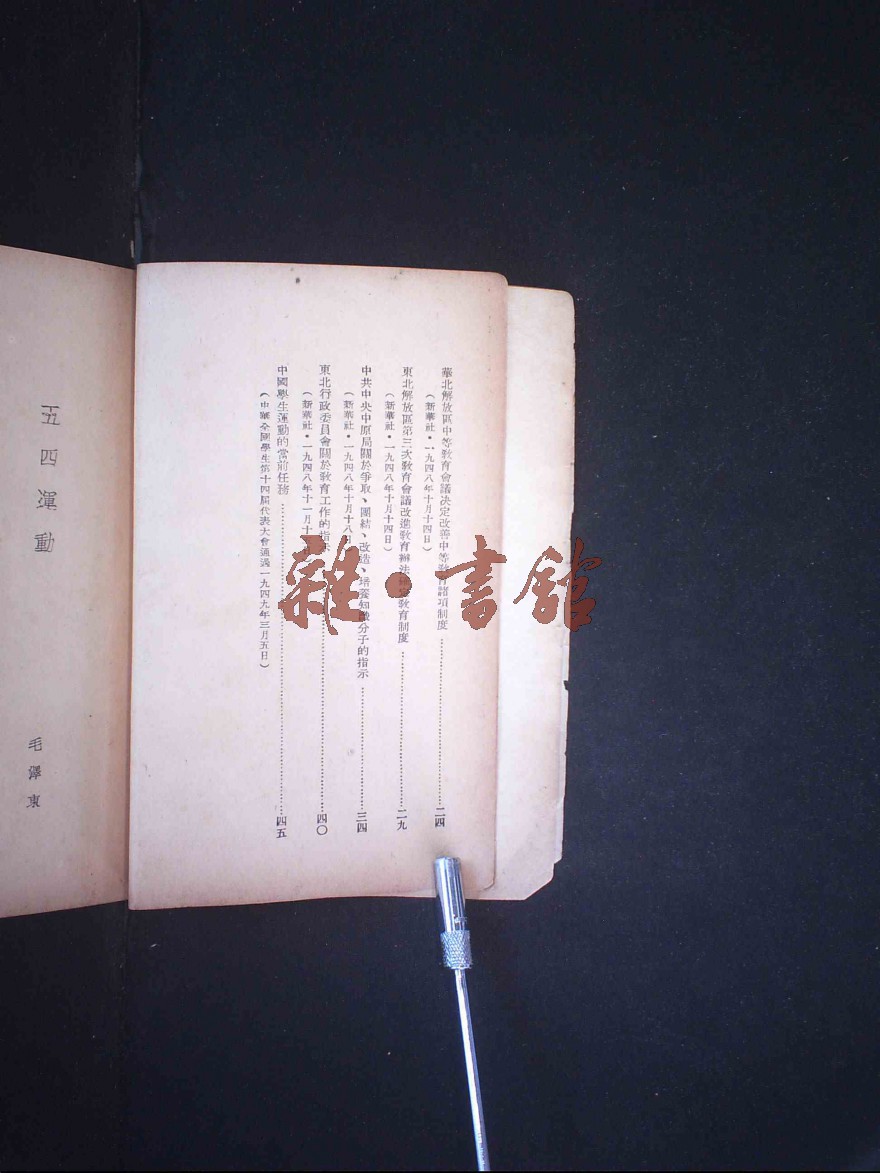 華北解放區中等敎育會議决定改善中等敎育諸項制度……二四
(新華社·一九四八年十月十四日)
東北解放區第三次敎育會議改進敎育辦法確定敎育制度……二九
(新華社·一九四八年十月十四日)
中共中央中原局關於爭取、團結、改造、培養知識分子的指示……三四
(新華社·一九四八年十月十八日
東北行政委員會關於敎育工作的指示……四〇
(新華社·一九四八年十一月十
中國學生運動的當前任務……四五
(中華全國學生第十四屆代表大會通過一九四九年三月五日)
五四運動
毛澤東
雜·書館